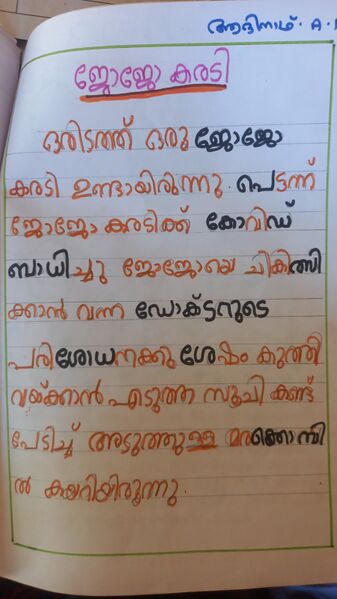 ആദിനാഥ്. A.
ജോജോ കരടി
ഒരിടത്ത് ഒരു ജോജോ
കരടി ഉണ്ടായിരുന്നു. പെട്ടന്ന്
ജോജോ കരടിക്ക് കോവിഡ്
ബാധിച്ചു ജോജോയെ ചികിത്സി
ക്കാൻ വന്ന ഡോക്ടറുടെ
പരിശോധനക്കു ശേഷം കുത്തി
വയ്ക്കാൻ എടുത്ത സൂചി കണ്ട്
പേടിച്ച് അടുത്തുള്ള മരക്കൊമ്പി
ൽ കയറിയിരുന്നു.